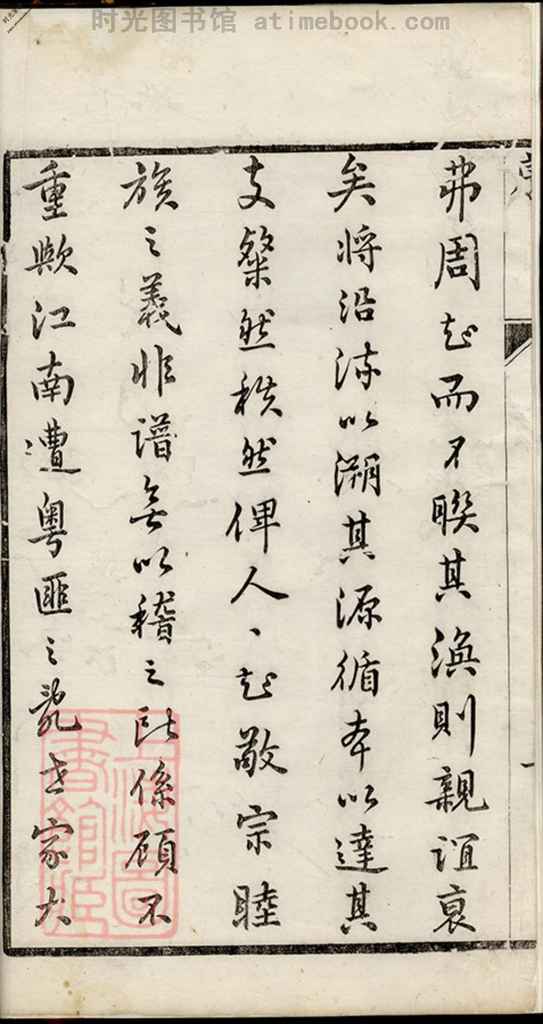 时光图书馆 atimebook.com
弗周起而不聨其渙則親誼衰
矣將沿流以溯其源循本以達其
支粲然秩然俾人、起敬宗睦
族之義非譜無以稽之所係顧不
重歟江南遭粤匪之亂世家大